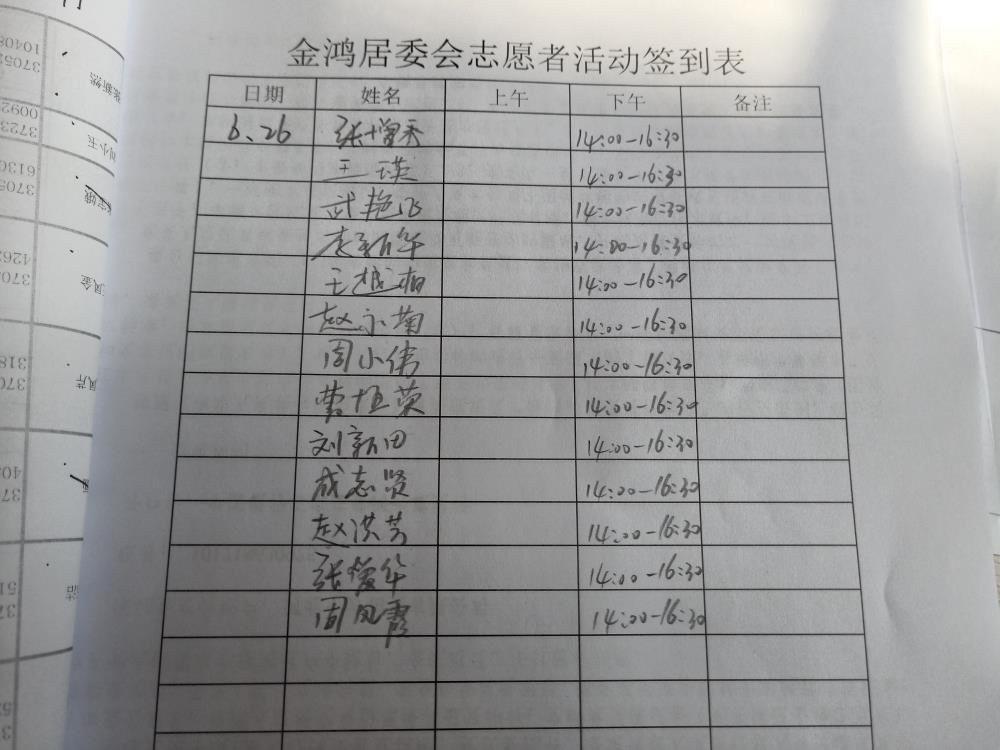 金鸿居委会志愿者活动签到表
日期 姓名 上午 下午 备注
6、26 张增禾 14:00-16:30
王瑛 14:00-16:30
武艳飞 14:00-16:30
李新华 14:00-16:30
王越相 14:00-16:30
赵永菊 14:00-16:30
周小伟 14:00-16:30
曹恒英 14:00-16:30
刘新田 14:00-16:30
成志贤 14:00-16:30
赵洪芳 14:00-16:30
张爱华 14:00-16:30
周凤霞 14:00-16:30